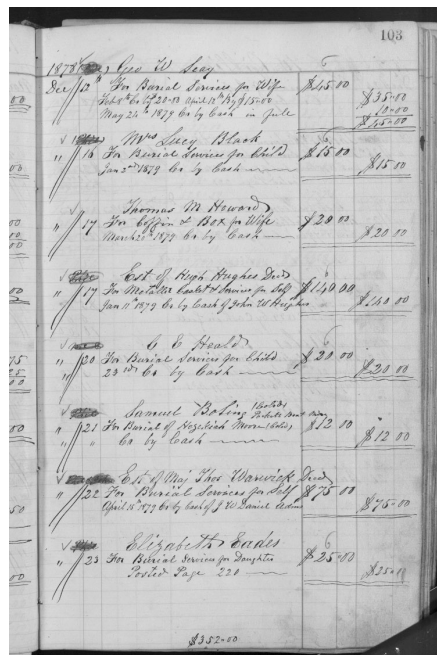 103
1878 Geo W. Seay
Dec 12 For Burial Services for Wife $45.00
Feb 8th Cr By 20-00 April 12th By $15-00 $35-00
May 24th 1879 Cr by Cash in full 10-00
$45-00
Mrs Lucy Black
" 16 For Burial Services for Child $15.00
Jan 2nd 1879 Cr by Cash $15.00
Thomas M Howard
" 17 For Coffin & Box for Wife $20 00
March 20th 1879 Cr by Cash $20 00
Est of Hugh Hughes Decd
" 17 For Metallic Casket & Service for Self $140 00
Jan 11th 1879 Cr by Cash of John W Hughes $140 00
C E Heald
" 20 For Burial Services for Child $20 00
" 23rd Cr by Cash $20 00
Samuel Boling (Cold)
" 21 For Burial of Hezekiah Moore (Cold) $12 00
" " Cr by Cash $12 00
Est of Maj Thos Warwick Decd
" 22 For Burial Services for Self $75 00
April 15th 1879 Cr by Cash of J W Daniel Admr $75-00
Elizabeth Eades
" 23 For Burial Services for Daughter $25-00
Posted Page 220 $25-00
$352-00